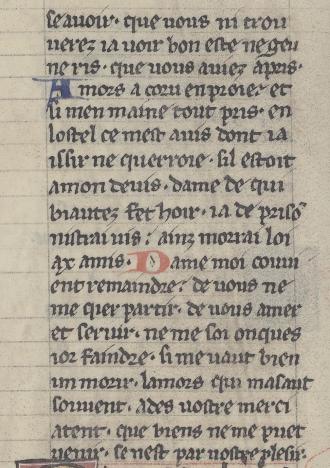 seauoir · que uous ni trou
uerez ia uoir bon este ne geu
ne ris · que uous auiez apris ·
Amors a coru en proie · et
si men maine tout pris · en
lostel ce mest auis dont ia
issir ne querroie · sil estoit
a mon deuis · dame de qui
biautez fet hoir · ia de prisō
nistrai uis ; ainz morrai loi
ax amis · Dame moi couui
ent remaindre ; de uous ne
me qier partir · de uous amer
et seruir · ne me soi onques
ior faindre · si me uaut bien
un morir · lamors qui masaut
souuent · ades uostre merci
atent · que biens ne me puet
uenir · se nest par uostre plesir ·